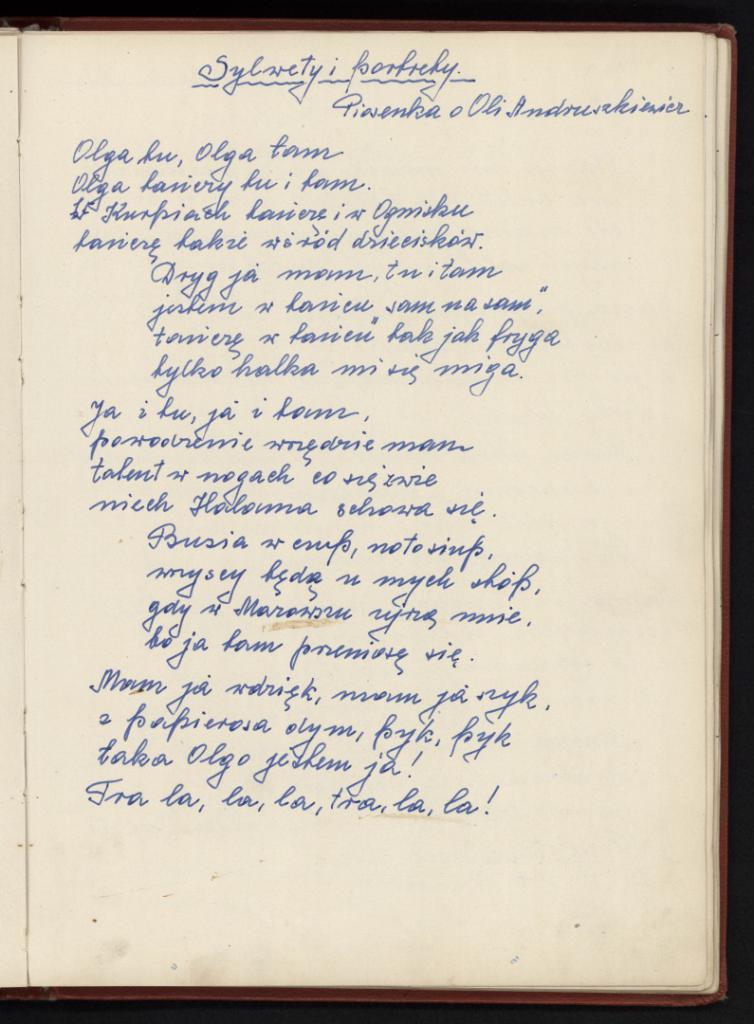 Sylwety i portrety.
Piosenka o Oli Andruszkiewicz
Olga tu, Olga tam
Olga tańczy tu i tam.
W Kurpiach tańczę i w Ognisku
tańczę także wśród dziecisków.
Dryg ja mam, tu i tam
jestem w tańcu „sam na sam",
tańczę w tańcu tak jak fryga
tylko halka mi się miga.
Ja i tu, ja i tam,
powodzenie wszędzie mam
talent w nogach co się zwie
niech Halama schowa się.
Buzia w ciup, noto siup,
wszyscy będą u mych stóp,
gdy w Mazowszu ujrzą mnie,
bo ja tam przeniosę się.
Mam ja wdzięk, mam ja szyk,
z papierosa dym, pyk, pyk
taka Olgo jestem ja!
Tra la, la, la, tra, la, la!